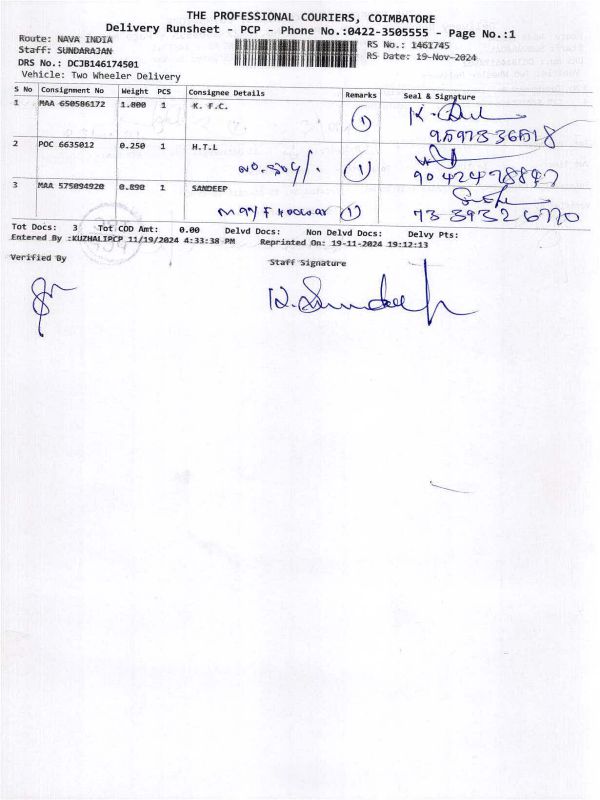 THE PROFESSIONAL COURIERS, COIMBATORE
Delivery Runsheet - PCP - Phone No.:0422-3505555 - Page No.:1
Route: NAVA INDIA
RS No.: 1461745
Staff: SUNDARAJAN
RS Date: 19-Nov-2024
DRS No.: DCJB146174501
Vehicle: Two Wheeler Delivery
S No Consignment No Weight PCS Consignee Details Remarks Seal & Signature
1 MAA 650586172 1.000 1 K. F.C. 1
2 POC 6635012 0.250 1 H.T.L 1
3 MAA 575094920 0.890 1 SANDEEP 1
73 39326770
Tot Docs: 3 Tot COD Amt: 0.00 Delvd Docs: Non Delvd Docs: Delvy Pts:
Entered By :KUZHALIPCP 11/19/2024 4:33:38 PM Reprinted On: 19-11-2024 19:12:13
Verified By
Staff Signature